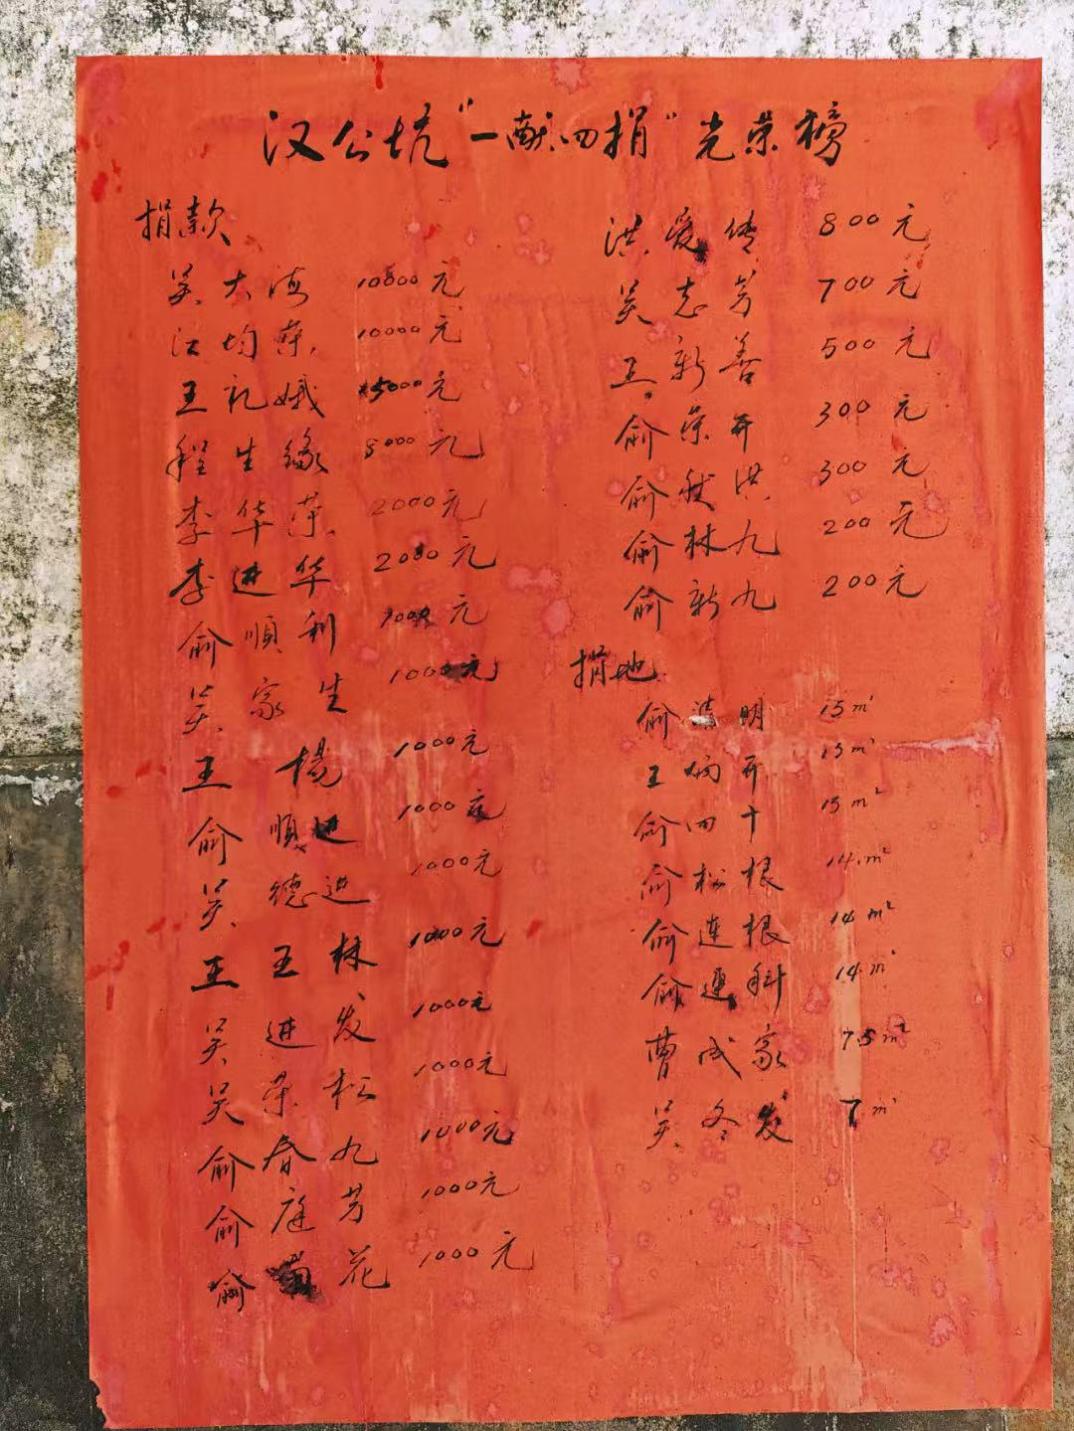 汉公坑"一献四捐"光荣榜
捐款
吴大海 10000元
江均荣 10000元
王礼娥 5000元
程生缘 8000元
李华荣 2000元
李进华 2000元
俞順利 1000元
吴家生 1000元
王楊 1000元
俞順进 1000元
吴德进 1000元
王玉林 1000元
吴进发 1000元
吴荣松 1000元
俞春九 1000元
俞庭芳 1000元
俞菊花 1000元
洪爱传 800元
吴志芳 700元
王新善 500元
俞荣开 300元
俞秋洪 300元
俞林九 200元
俞新九 200元
捐地
俞清明 15m²
王炳开 15m²
俞四十 15m²
俞松根 14m²
俞连根 14m²
俞連科 14m²
曹成家 7.5m²
吴冬发 7m²